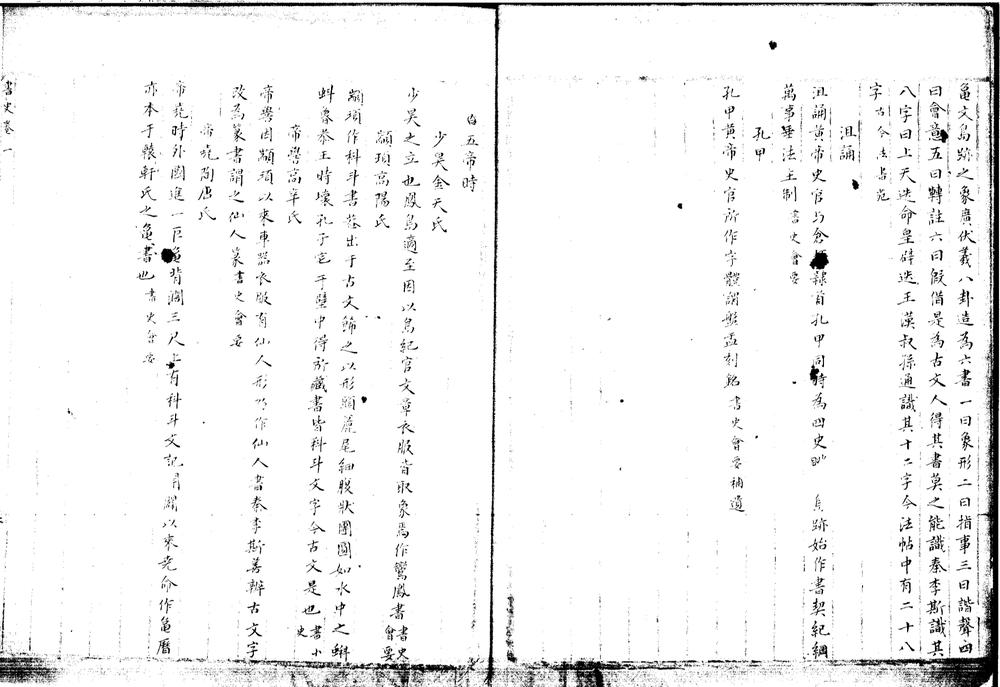 龜文鳥跡之象廣伏羲八卦造為六書一曰象形二曰指事三曰諧聲四
曰會意五曰轉註六曰假借是為古文人得其書莫之能識秦李斯識其
八字曰上天迭命皇辟迭王漢叔孫通識其十二字今法帖中有二十八
字古今法書苑
沮誦
沮誦黃帝史官與倉頡隸首孔甲同時為四史 鳥跡始作書契紀綱
萬事垂法主制書史會要
孔甲
孔甲黃帝史官所作字體謂盤盂刻銘書史會要補遺
五帝時
少昊金天氏
少昊之立也鳳鳥適至因以鳥紀官文章衣服皆取象焉作鸞鳳書書史會要
顓頊高陽氏
顓頊作科斗書蓋出于古文飾之以形頭麄尾細腹狀團圓如水中之蝌
蚪魯恭王時壞孔子宅于壁中得所藏書皆科斗文字今古文是也書小史
帝嚳高辛氏
帝嚳因顓頊以來車器衣服有仙人形乃作仙人書秦李斯善辨古文字
改為篆書謂之仙人篆書史會要
帝堯陶唐氏
帝堯時外國進一巨龜背濶三尺上有科斗文記開闢以來堯命作龜曆
亦本于軒轅氏之龜書也書史會要
書史卷一